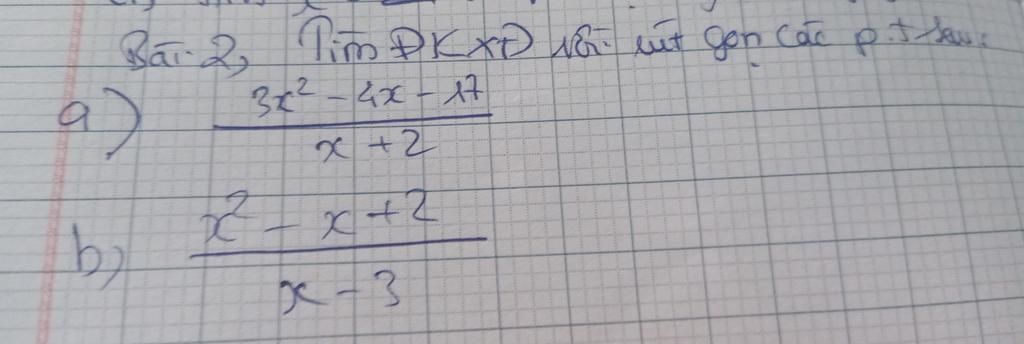 Bài 2, Tìm ĐKXĐ rồi rút gọn các p.t sau:
a) 3x² - 4x - 17
x + 2
b) x² - x + 2
x - 3